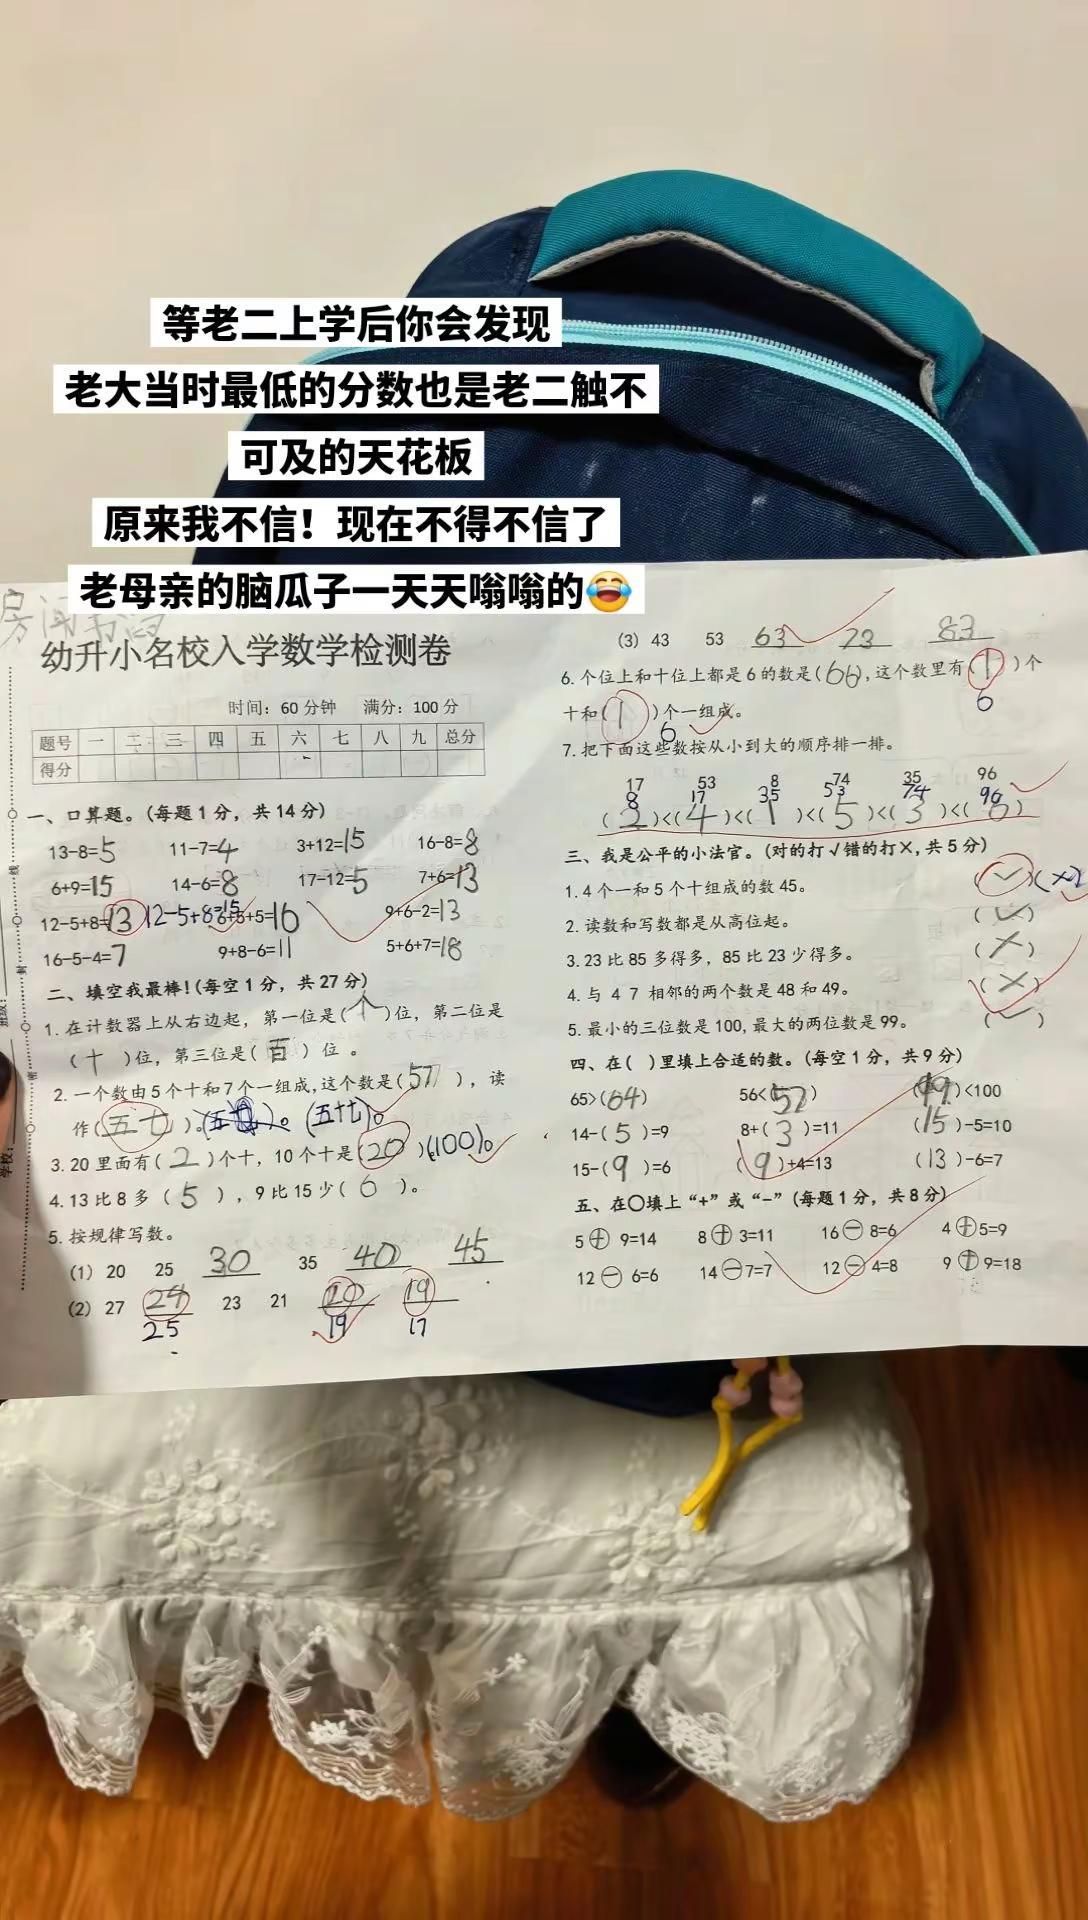 等老二上学后你会发现
老大当时最低的分数也是老二触不
可及的天花板
原来我不信！现在不得不信了
老母亲的脑瓜子一天天嗡嗡的😂
幼升小名校入学数学检测卷
时间：60分钟 满分：100分
题号 一 二 三 四 五 六 七 八 九 总分
得分
一、口算题。(每题1分，共14分)
13-8=5 11-7=4 3+12=15 16-8=8
6+9=15 14-6=8 17-12=5 7+6=13
12-5+8=13 12-5+8=15 6+5+5=16 9+6-2=13
16-5-4=7 9+8-6=11 5+6+7=18
二、填空我最棒！(每空1分，共27分)
1.在计数器上从右边起，第一位是(个)位，第二位是
(十)位，第三位是(百)位。
2.一个数由5个十和7个一组成,这个数是(57)，读
作(五七)。(五十七)。
3.20里面有(2)个十，10个十是(20)(100)。
4.13比8多(5)，9比15少(6)。
5.按规律写数。
(1) 20 25 30 35 40 45
(2) 27 24 23 21 20 19
25 19 17
(3) 43 53 63 73 83
6.个位上和十位上都是6的数是(66),这个数里有(1)个
6
十和(1)个一组成。
6
7.把下面这些数按从小到大的顺序排一排。
17 53 8 74 35 96
8 17 35 53 74 96
(2)<(4)<(1)<(5)<(3)<(6)
三、我是公平的小法官。(对的打√错的打×,共5分)
1.4个一和5个十组成的数45。 (√)(×)
2.读数和写数都是从高位起。 (√)
3.23比85多得多，85比23少得多。 (×)
4.与 4 7 相邻的两个数是48和49。 (×)
5.最小的三位数是100,最大的两位数是99。 (√)
四、在( )里填上合适的数。(每空1分，共9分)
65>(64) 56<(57) (99)<100
14-(5)=9 8+(3)=11 (15)-5=10
15-(9)=6 (9)+4=13 (13)-6=7
五、在○填上“+”或“-”(每题1分，共8分)
5+9=14 8+3=11 16-8=6 4+5=9
12-6=6 14-7=7 12-4=8 9+9=18
学校：